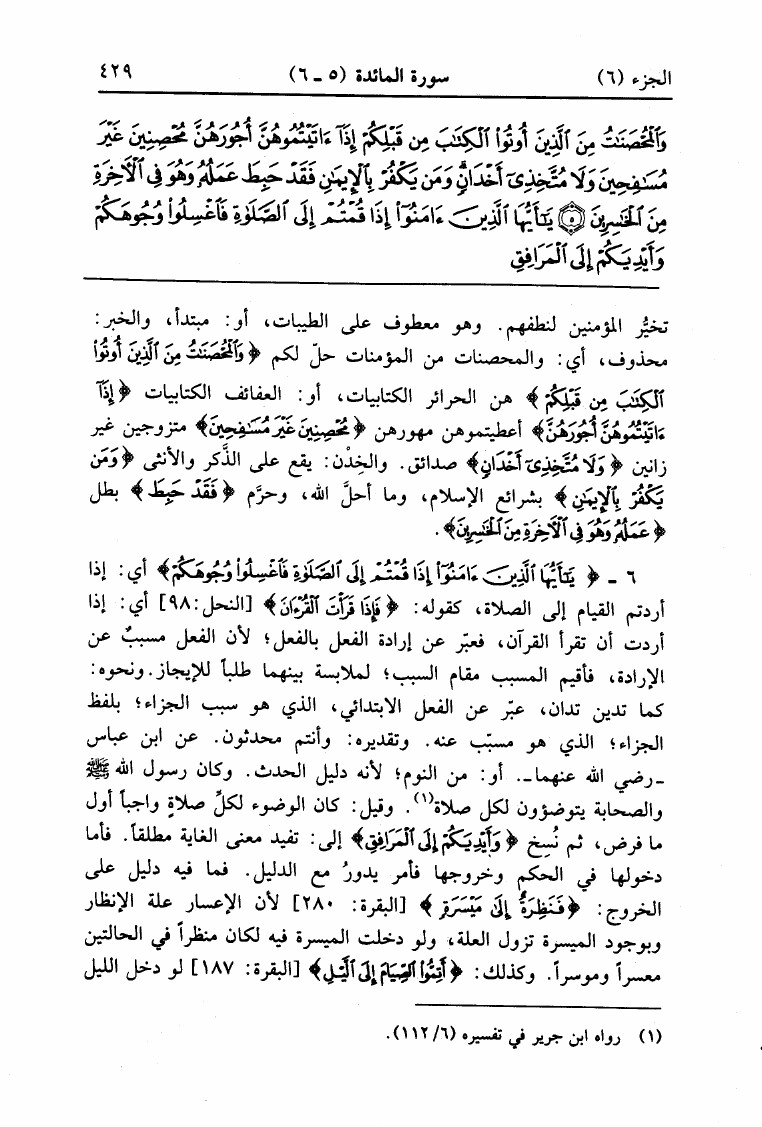 الجزء (٦) سورة المائدة (٥ - ٦) ٤٢٩
وَٱلْمُحْصَنَٰتُ مِنَ ٱلَّذِينَ أُوتُوا۟ ٱلْكِتَٰبَ مِن قَبْلِكُمْ إِذَآ ءَاتَيْتُمُوهُنَّ أُجُورَهُنَّ مُحْصِنِينَ غَيْرَ
مُسَٰفِحِينَ وَلَا مُتَّخِذِىٓ أَخْدَانٍ وَمَن يَكْفُرْ بِٱلْإِيمَٰنِ فَقَدْ حَبِطَ عَمَلُهُۥ وَهُوَ فِى ٱلْءَاخِرَةِ
مِنَ ٱلْخَٰسِرِينَ ۝٥ يَٰٓأَيُّهَا ٱلَّذِينَ ءَامَنُوٓا۟ إِذَا قُمْتُمْ إِلَى ٱلصَّلَوٰةِ فَٱغْسِلُوا۟ وُجُوهَكُمْ
وَأَيْدِيَكُمْ إِلَى ٱلْمَرَافِقِ
تخيُّر المؤمنين لنطفهم. وهو معطوف على الطيبات، أو: مبتدأ، والخبر:
محذوف، أي: والمحصنات من المؤمنات حلّ لكم ﴿وَٱلْمُحْصَنَٰتُ مِنَ ٱلَّذِينَ أُوتُوا۟
ٱلْكِتَٰبَ مِن قَبْلِكُمْ﴾ هن الحرائر الكتابيات، أو: العفائف الكتابيات ﴿إِذَآ
ءَاتَيْتُمُوهُنَّ أُجُورَهُنَّ﴾ أعطيتموهن مهورهن ﴿مُحْصِنِينَ غَيْرَ مُسَٰفِحِينَ﴾ متزوجين غير
زانين ﴿وَلَا مُتَّخِذِىٓ أَخْدَانٍ﴾ صدائق. والخِدْن: يقع على الذَّكر والأنثى ﴿وَمَن
يَكْفُرْ بِٱلْإِيمَٰنِ﴾ بشرائع الإسلام، وما أحلَّ الله، وحرَّم ﴿فَقَدْ حَبِطَ﴾ بطل
﴿عَمَلُهُۥ وَهُوَ فِى ٱلْءَاخِرَةِ مِنَ ٱلْخَٰسِرِينَ﴾.
٦ - ﴿يَٰٓأَيُّهَا ٱلَّذِينَ ءَامَنُوٓا۟ إِذَا قُمْتُمْ إِلَى ٱلصَّلَوٰةِ فَٱغْسِلُوا۟ وُجُوهَكُمْ﴾ أي: إذا
أردتم القيام إلى الصلاة، كقوله: ﴿فَإِذَا قَرَأْتَ ٱلْقُرْءَانَ﴾ [النحل: ٩٨] أي: إذا
أردت أن تقرأ القرآن، فعبّر عن إرادة الفعل بالفعل؛ لأن الفعل مسببٌ عن
الإرادة، فأقيم المسبب مقام السبب؛ لملابسة بينهما طلباً للإيجاز. ونحوه:
كما تدين تدان، عبّر عن الفعل الابتدائي، الذي هو سبب الجزاء؛ بلفظ
الجزاء؛ الذي هو مسبّب عنه. وتقديره: وأنتم محدثون. عن ابن عباس
ـ رضي الله عنهما ـ. أو: من النوم؛ لأنه دليل الحدث. وكان رسول الله ﷺ
والصحابة يتوضؤون لكل صلاة(١). وقيل: كان الوضوء لكلِّ صلاةٍ واجباً أول
ما فرض، ثم نُسِخ ﴿وَأَيْدِيَكُمْ إِلَى ٱلْمَرَافِقِ﴾ إلى: تفيد معنى الغاية مطلقاً. فأما
دخولها في الحكم وخروجها فأمر يدورُ مع الدليل. فما فيه دليل على
الخروج: ﴿فَنَظِرَةٌ إِلَىٰ مَيْسَرَةٍ﴾ [البقرة: ٢٨٠] لأن الإعسار علة الإنظار
وبوجود الميسرة تزول العلة، ولو دخلت الميسرة فيه لكان منظراً في الحالتين
معسراً وموسراً. وكذلك: ﴿أَتِمُّوا۟ ٱلصِّيَامَ إِلَى ٱلَّيْلِ﴾ [البقرة: ١٨٧] لو دخل الليل
(١) رواه ابن جرير في تفسيره (٦/ ١١٢).